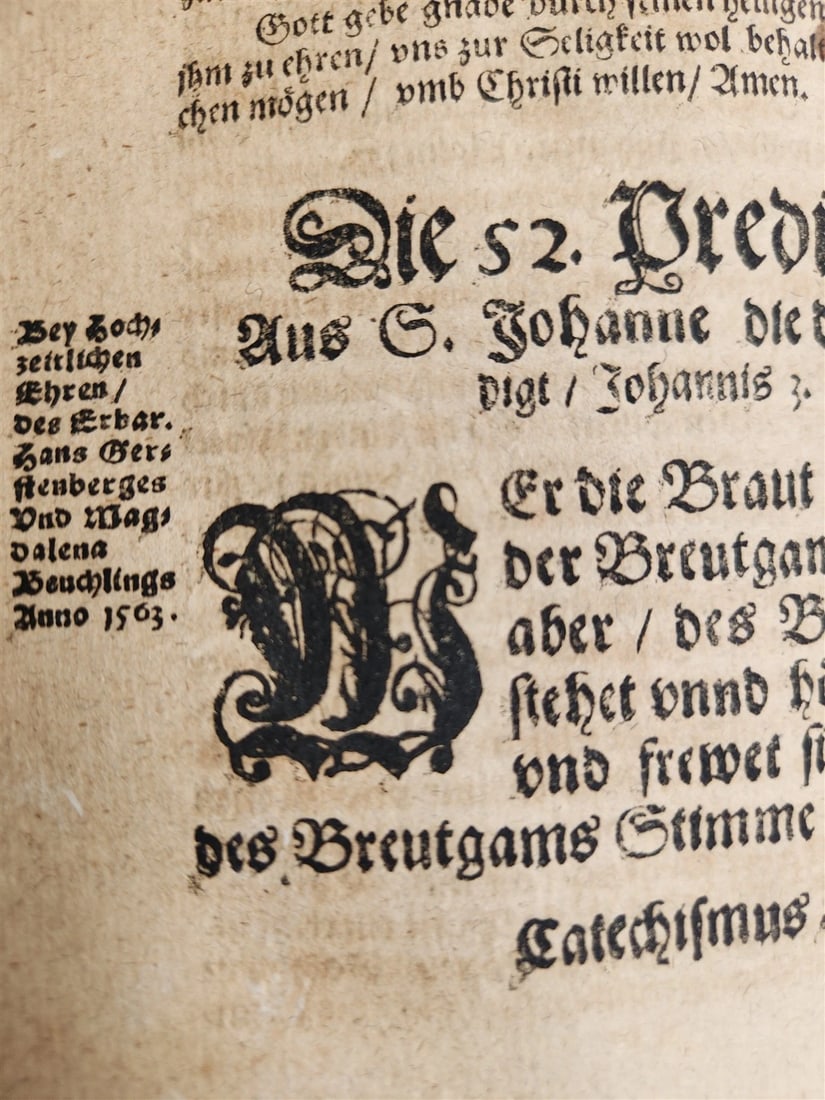 Gott gebe gnade durch seinen heiligen
jhm zu ehren / vns zur Seligkeit wol behalt
chen mögen / vmb Christi willen / Amen.
Die 52. Predi
Aus S. Johanne die
digt / Johannis 3.
Bey Hoch⸗
zeitlichen
Ehren /
des Erbar.
Hans Ger⸗
stenberges
Vnd Mag⸗
dalena
Beuchlings
Anno 1563.
WEr die Braut
der Breutgam
aber / des B
stehet vnnd hö
vnd frewet si
des Breutgams Stimme
Catechismus